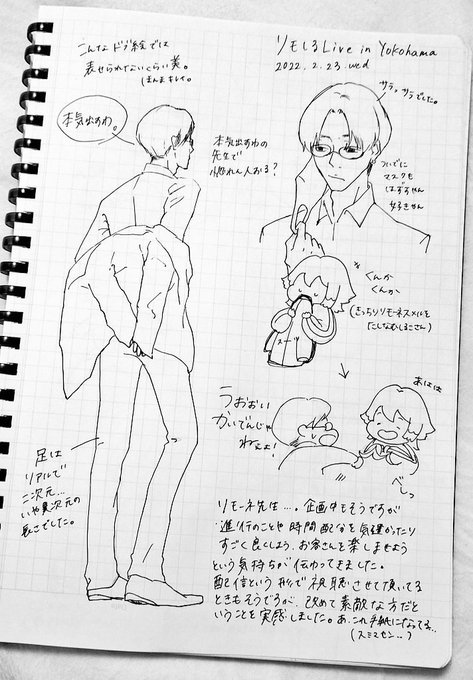 こんなドブ絵では
表せられないくらい美。
本気出すわ。
本気出すわの
先生で
惚れん人おる？
リモしるLive in Yokohama
2022.2.23.wed
サラッサラでした。
ついでに
マスクも
はずすやん
好きやん
くんか
くんか
(きっちりリモーネスメルを
たしなむしるこさん)
スーツ
↓
うおおい
かいでんじゃ
ねぇよ!
あはは
べしっ
足は
リアルで
二次元…
いや異次元の
長さでした。
リモーネ先生…。企画中もそうですが
進行のことや時間配分を気確かたり
すごく良くしよう、お客さんを楽しませよう
という気持ちが伝わってきました。
配信という形で視聴させて頂いてる
ときもそうですが、改めて素敵な方だと
いうことを実感しました。あ、これ手紙になってる…
(スミマセン…)